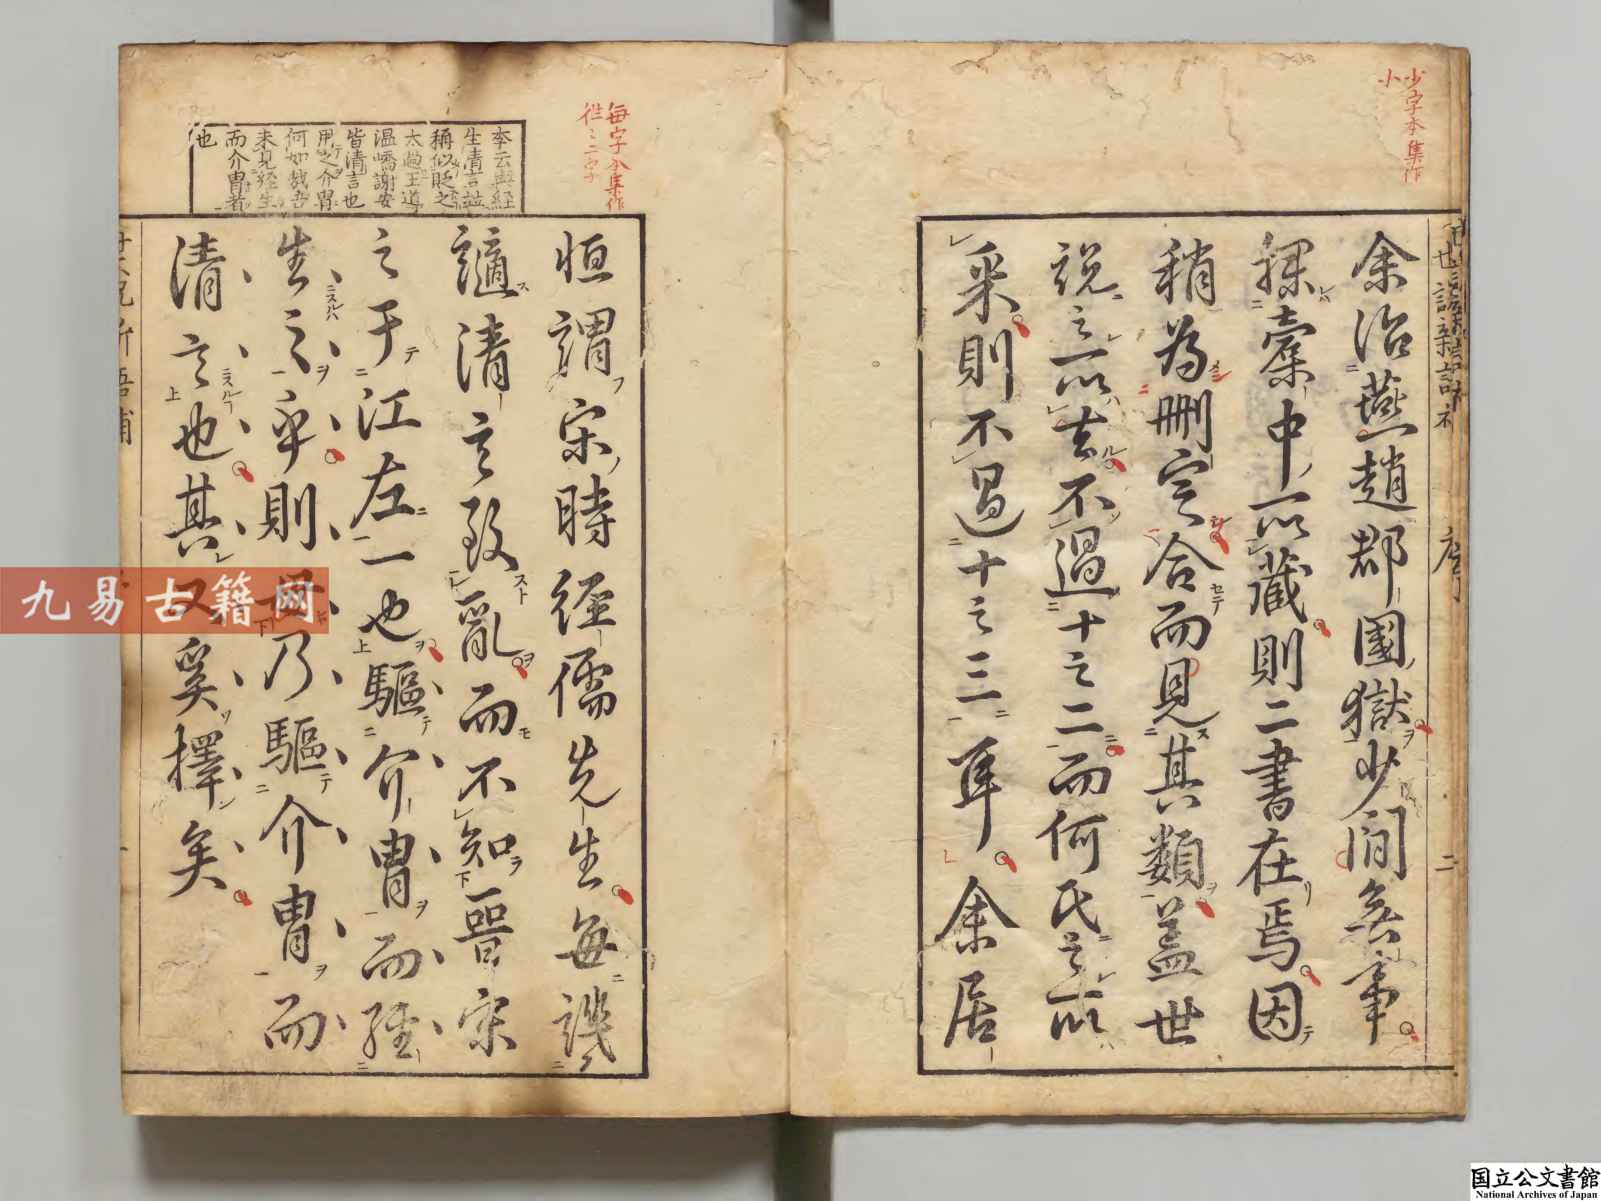 少字本集作
小
余治燕趙郡國獄少間無事
探槖中所藏則二書在焉因
稍為刪定合而見其類蓋世
說之所去不過十之二而何氏之所
采則不過十之三耳余居
序
二
每字本集作
往々二字
李云與經
生清言並
稱似貶之
太過王導
溫嶠謝安
皆清言也
用之介冑
何如哉吾
未見經生
而介冑者
也
恒謂宋時經儒先生每譏
謫清言致亂而不知晉宋
之于江左一也驅介冑而經
生之乎則毋乃驅介冑而
清言也其又奚擇矣
九易古籍网
国立公文書館
National Archives of Japan